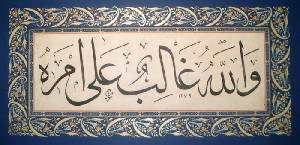 والله غالب على امره